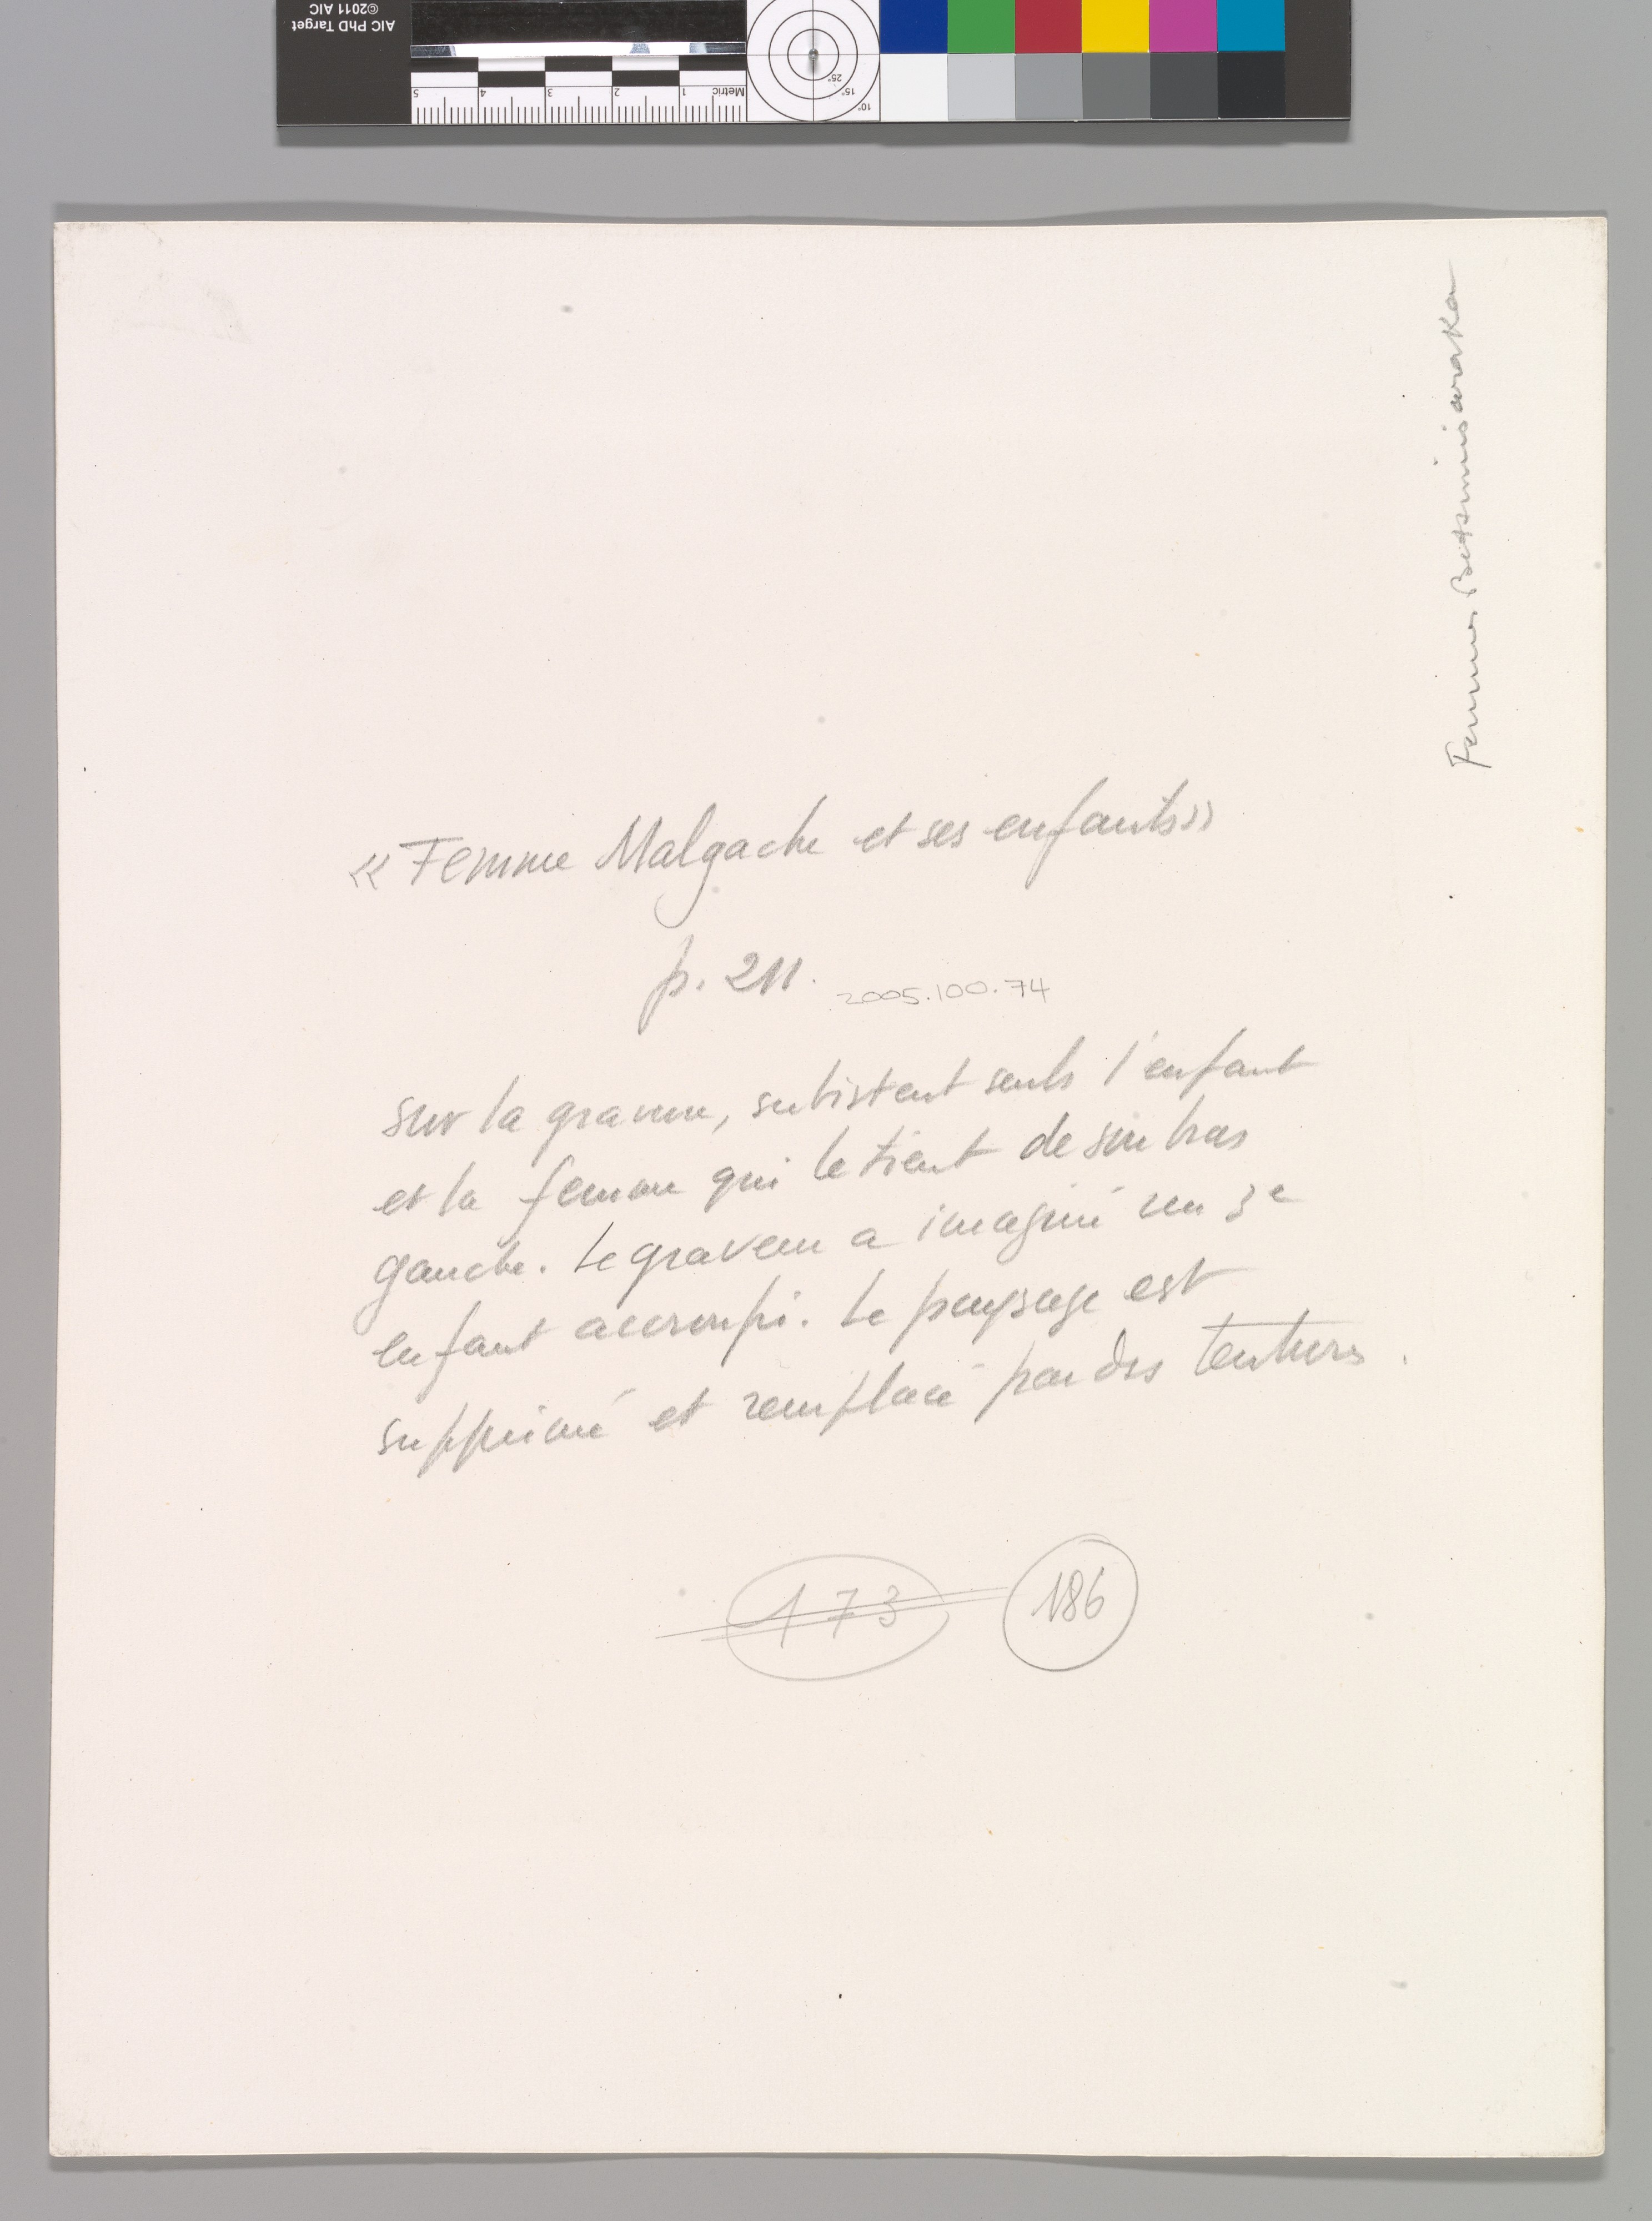 AIC PhD Target
©2011 AIC
Metric 1 2 3 4 5
10° 15° 25°
Femmes Betsimisaraka
« Femme Malgache et ses enfants »
p. 211.
2005.100.74
Sur la gravure, subsistent seuls l'enfant
et la femme qui le tient de son bras
gauche. Le graveur a imaginé un 3e
enfant accroupi. Le paysage est
supprimé et remplacé par des tentures.
173
186